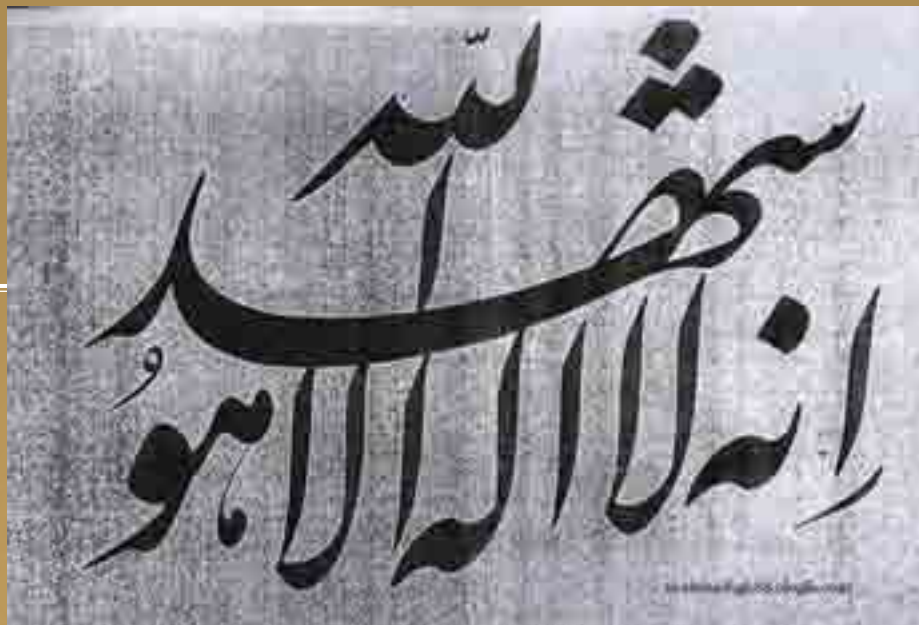 شهد الله
اِنه لا اله الا هوُ